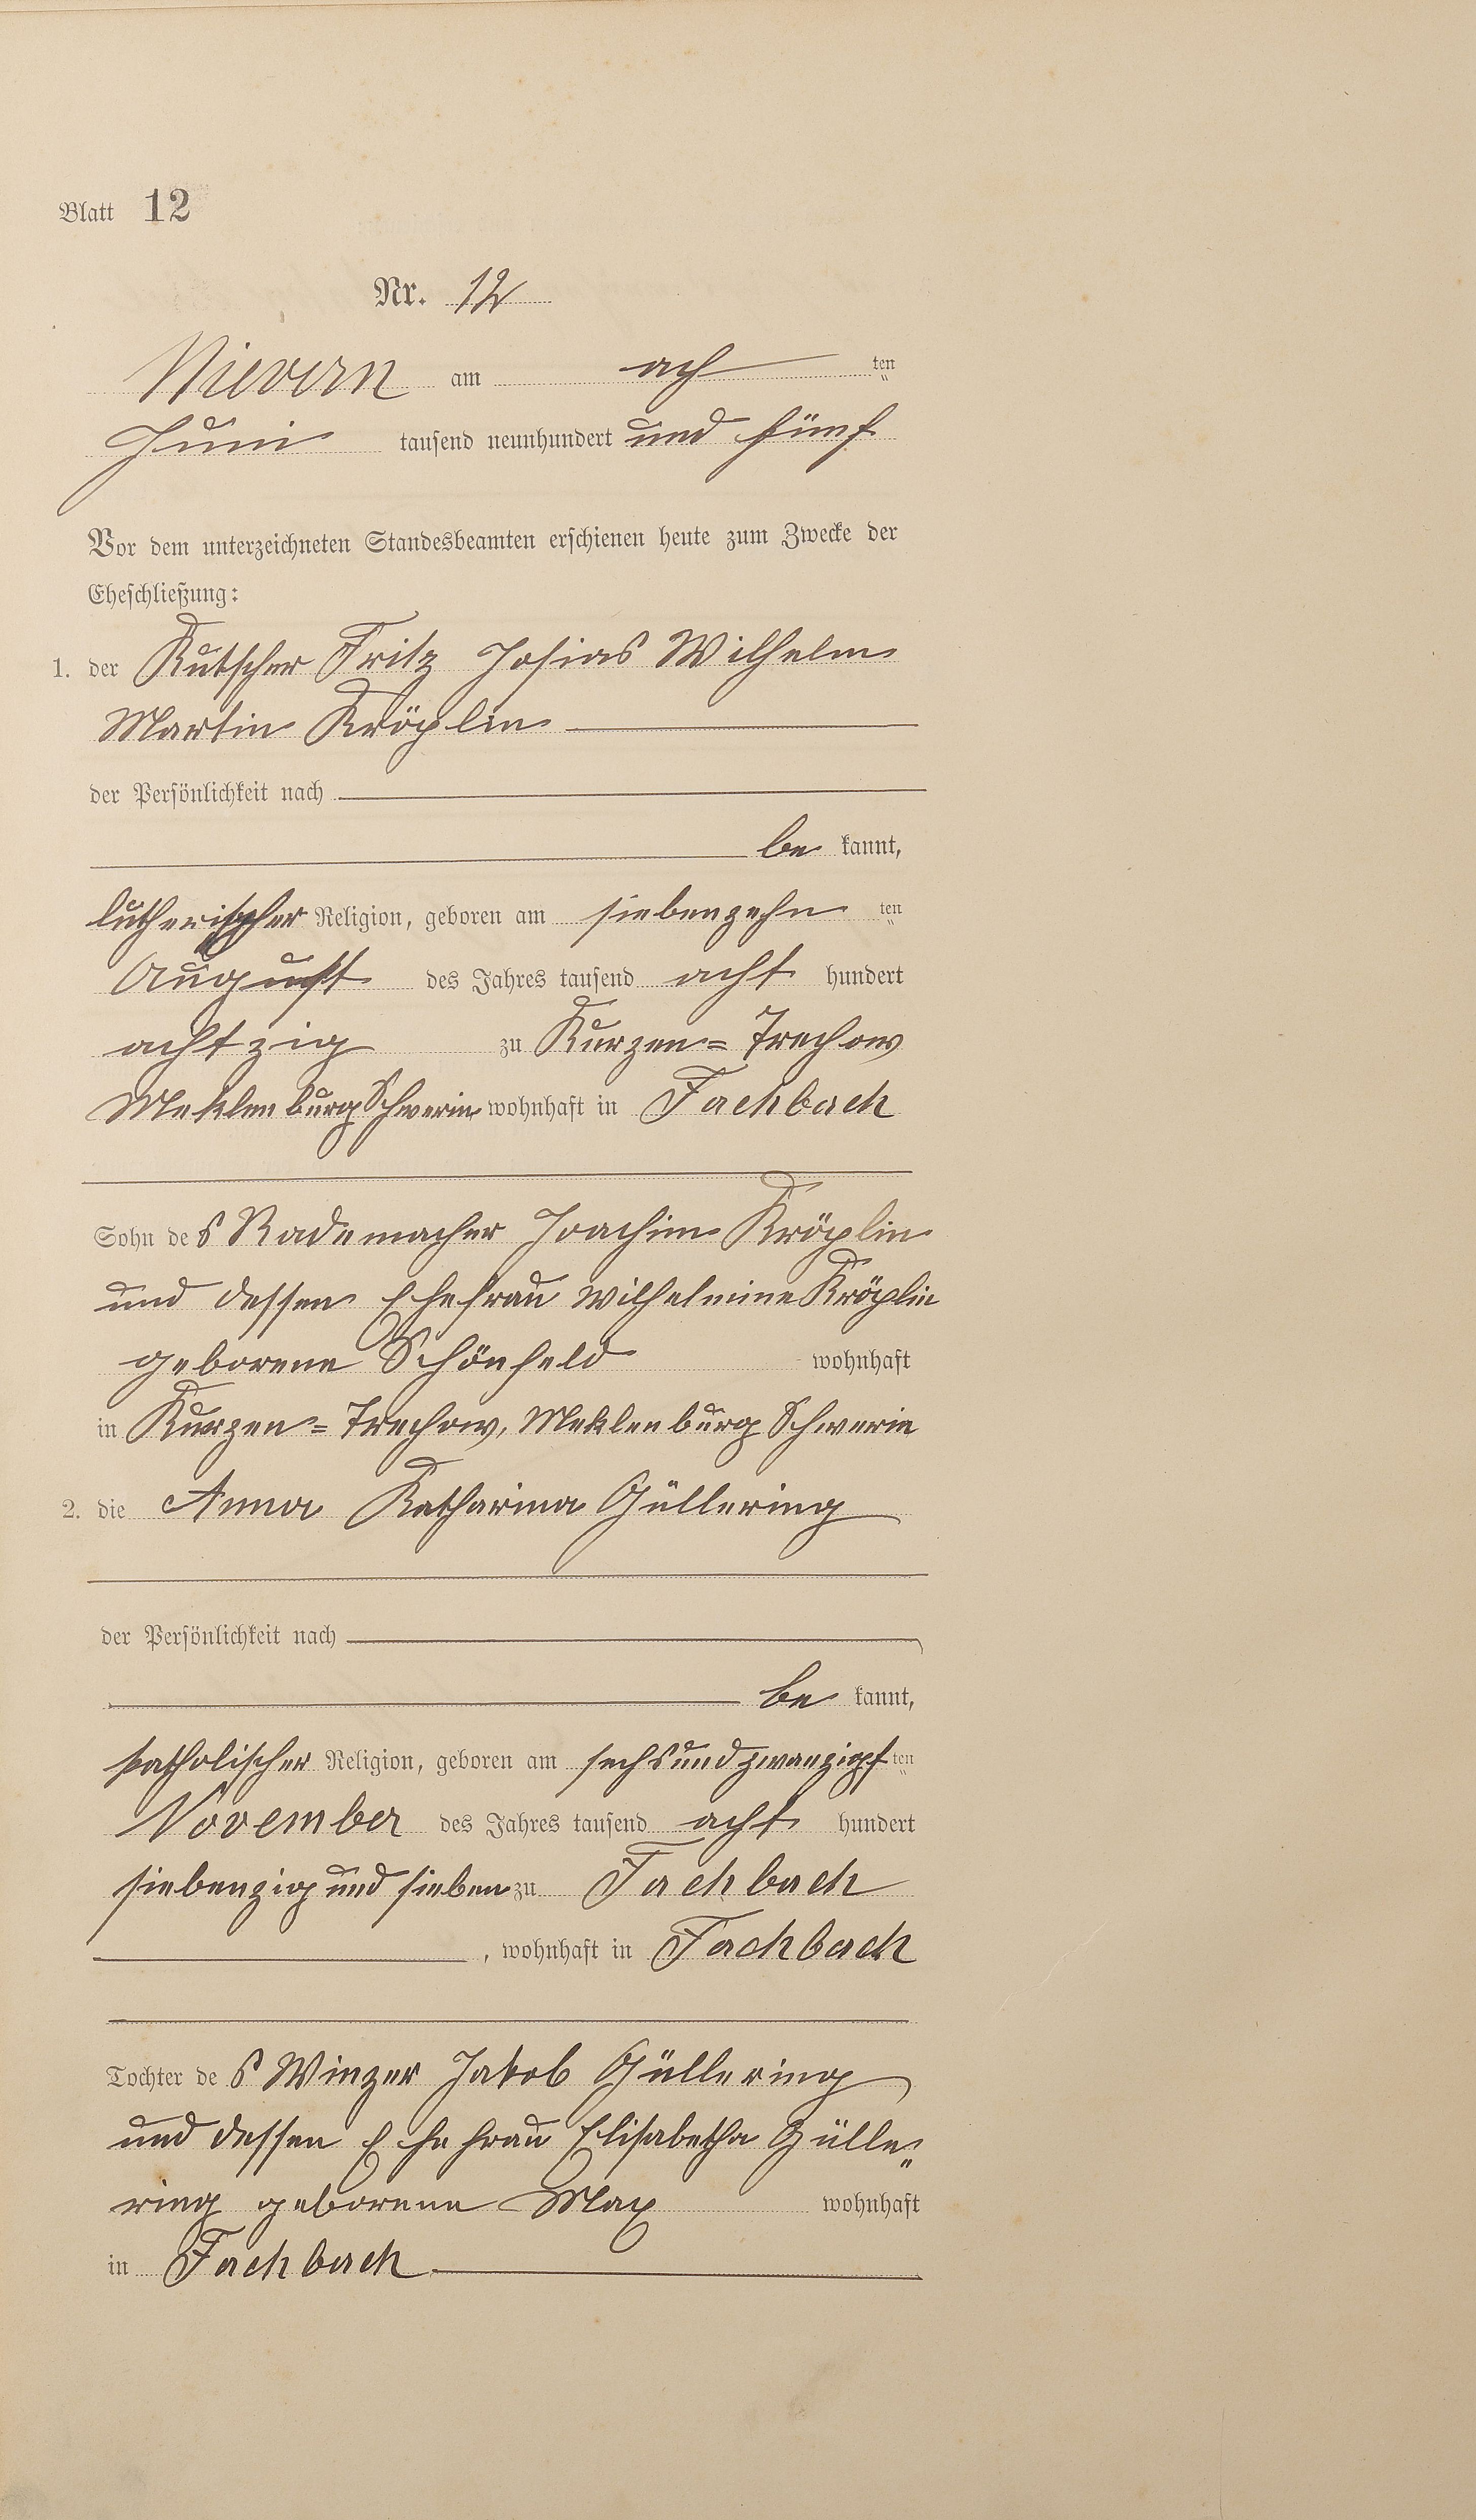 Blatt 12
Nr. 12
Nievern am ach ten
Juni tausend neunhundert und fünf
Vor dem unterzeichneten Standesbeamten erschienen heute zum Zwecke der
Eheschließung:
1. der Kutscher Fritz Josias Wilhelm
Martin Kröplin
der Persönlichkeit nach
be kannt,
lutherischer Religion, geboren am siebenzehn ten
August des Jahres tausend acht hundert
achtzig zu Kurzen=Trechow
Meklenburg Schwerin wohnhaft in Fachbach
Sohn des Rademacher Joachim Kröplin
und dessen Ehefrau Wilhelmine Kröplin
geborene Schönfeld wohnhaft
in Kurzen=Trechow, Meklenburg Schwerin
2. die Anna Katharina Güllering
der Persönlichkeit nach
be kannt,
katholischer Religion, geboren am sechsundzwanzigs ten
November des Jahres tausend acht hundert
siebenzig und sieben zu Fachbach
, wohnhaft in Fachbach
Tochter des Winzer Jakob Güllering
und dessen Ehefrau Elisabetha Gülle„
ring geborene May wohnhaft
in Fachbach